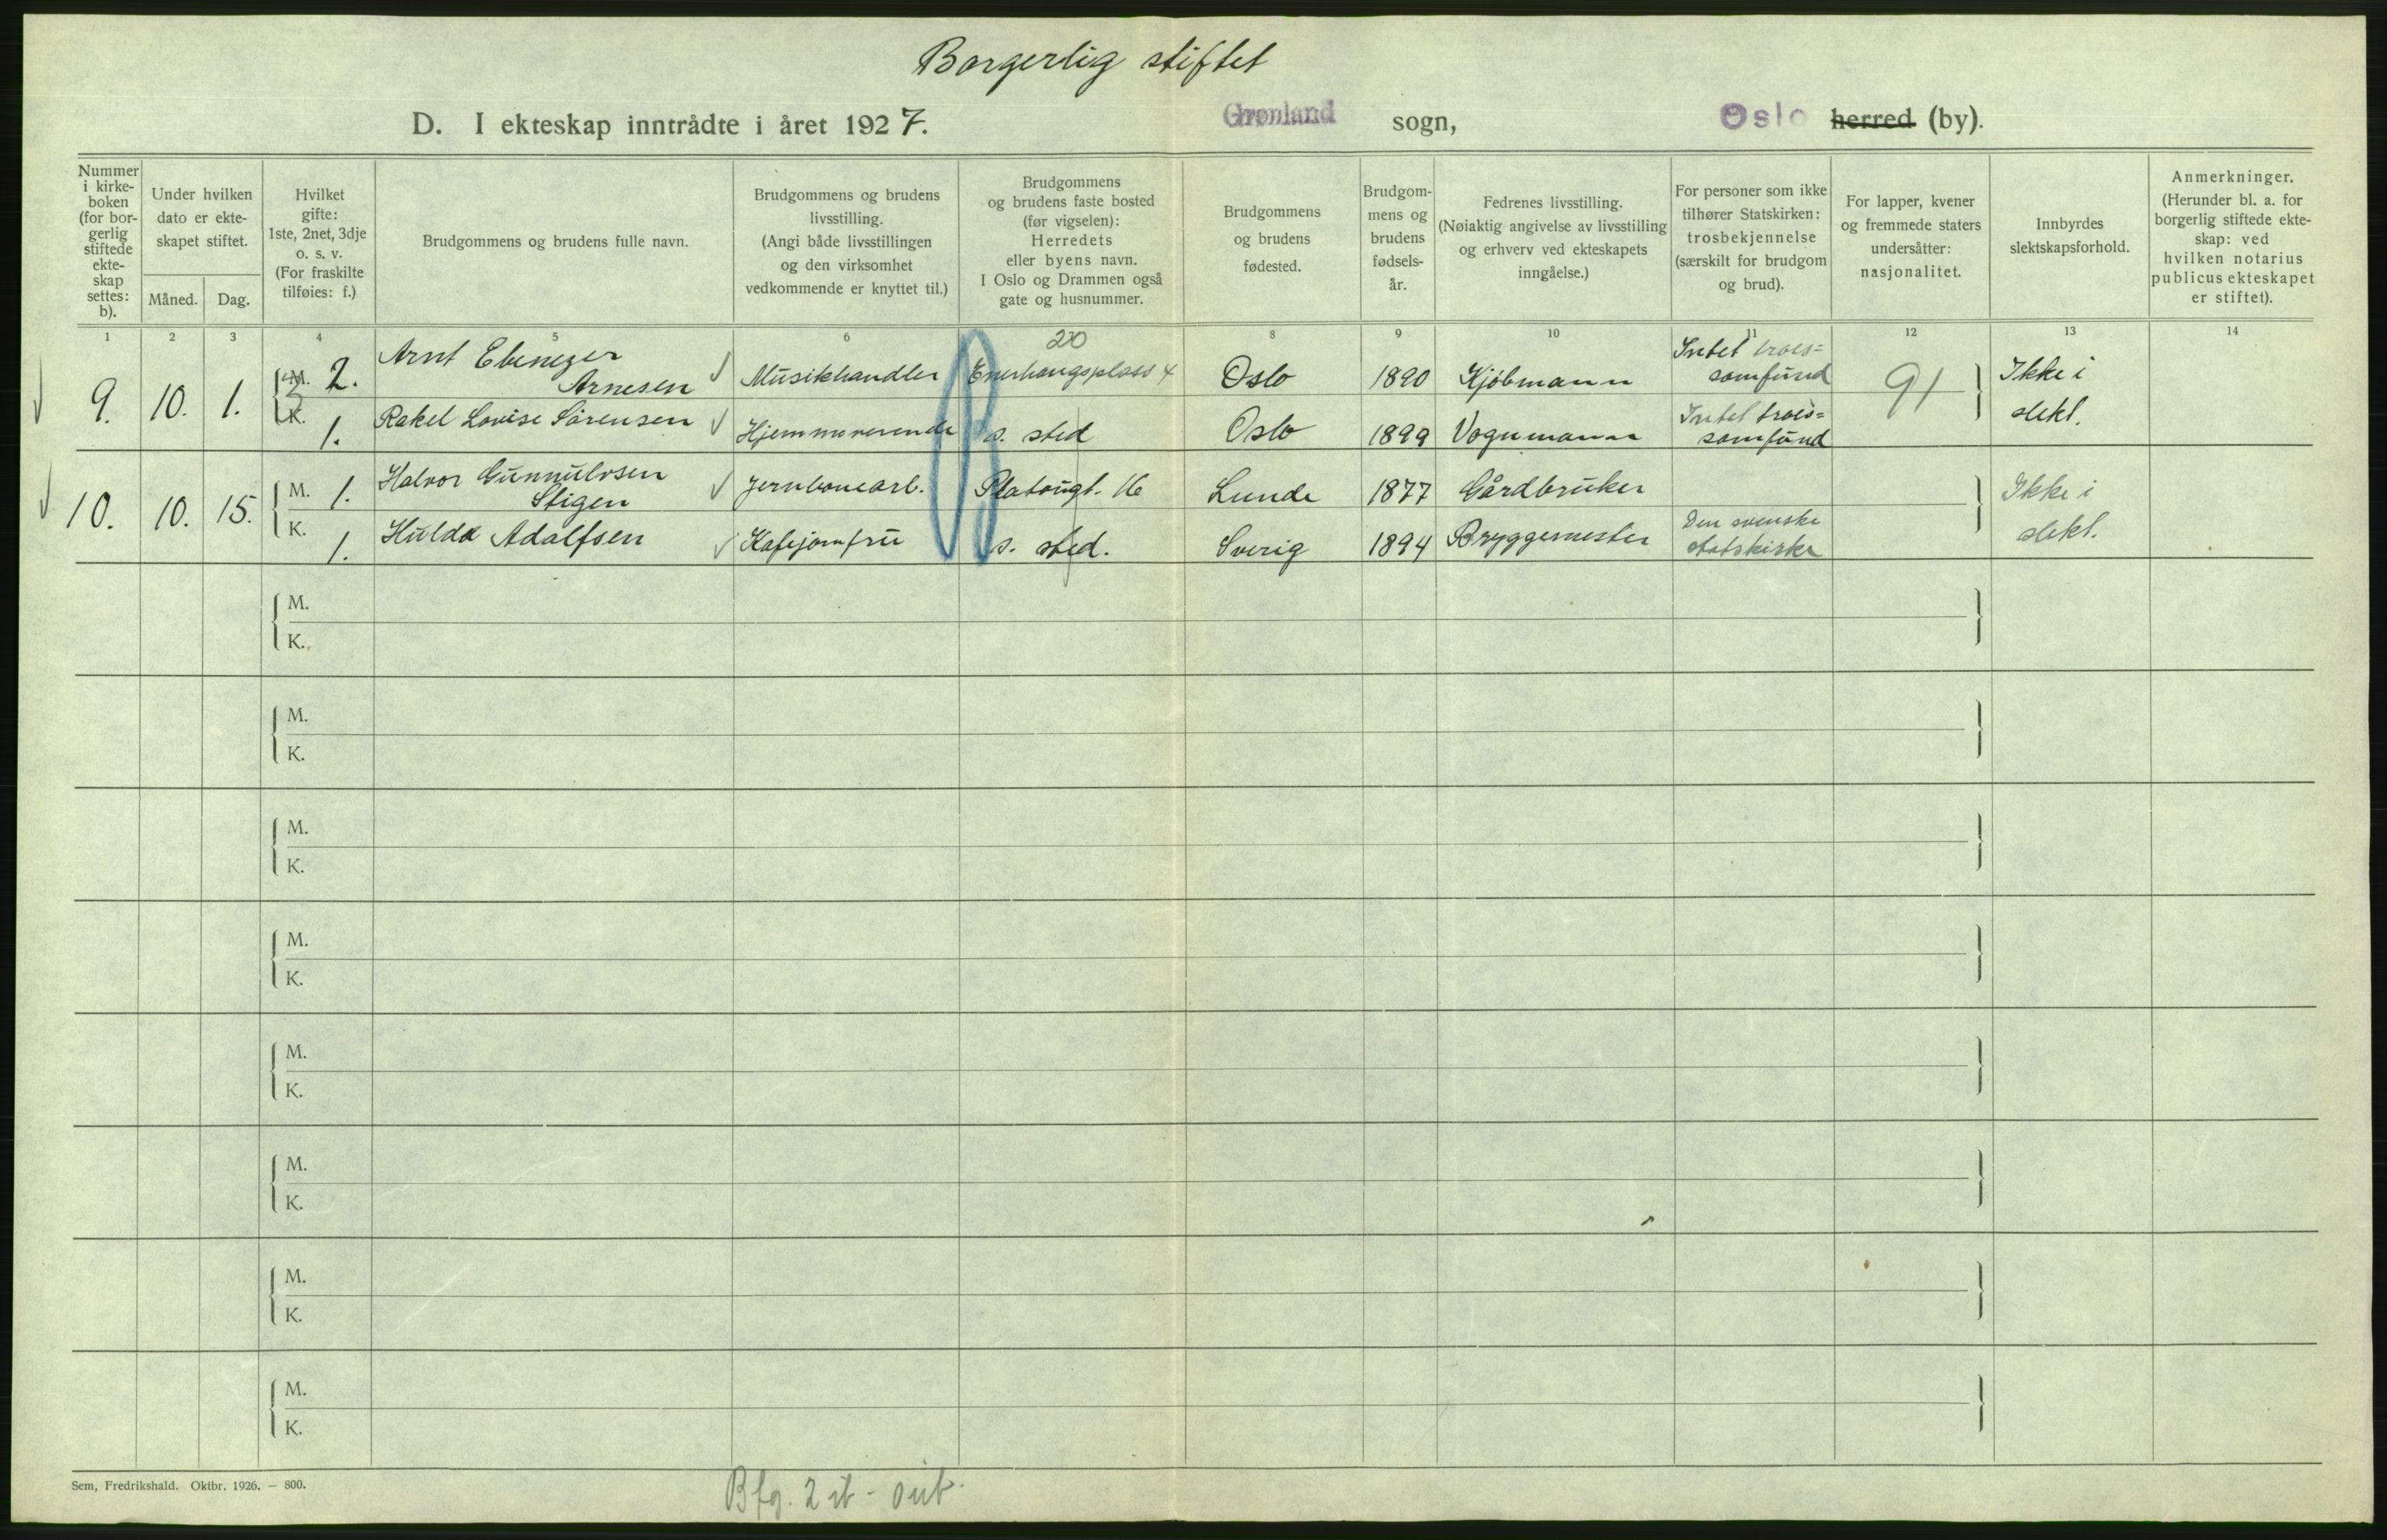 Borgerlig stiftet
D. I ekteskap inntrådte i året 1927. Grønland sogn, Oslo herred (by).
Nummer i kirke-boken (for bor-gerlig stiftede ekte-skap settes: b).
Under hvilken dato er ekte-skapet stiftet.
Måned. Dag.
Hvilket gifte: 1ste, 2net, 3dje o. s. v. (For fraskilte tilføies: f.)
Brudgommens og brudens fulle navn.
Brudgommens og brudens livsstilling. (Angi både livsstillingen og den virksomhet vedkommende er knyttet til.)
Brudgommens og brudens faste bosted (før vigselen): Herredets eller byens navn. I Oslo og Drammen også gate og husnummer.
Brudgommens og brudens fødested.
Brudgom-mens og brudens fødsels-år.
Fedrenes livsstilling. (Nøiaktig angivelse av livsstilling og erhverv ved ekteskapets inngåelse.)
For personer som ikke tilhører Statskirken: trosbekjennelse (særskilt for brudgom og brud).
For lapper, kvener og fremmede staters undersåtter: nasjonalitet.
Innbyrdes slektskapsforhold.
Anmerkninger. (Herunder bl. a. for borgerlig stiftede ekte-skap: ved hvilken notarius publicus ekteskapet er stiftet).
1 2 3 4 5 6 8 9 10 11 12 13 14
20
9. 10. 1. M. 2. Arnt Ebenezer Arnesen Musikhandler Enerhaugsplass 4 Oslo 1890 Kjøbmann Intet troes=somfund 91 Ikke i slekt.
K. 1. Rakel Lovise Sørensen Hjemmeverende s. sted Oslo 1899 Vognmann Intet troes=somfund
10. 10. 15. M. 1. Halvor Gunnulvsen Stigen Jernbanearb. Platougt. 16 Lunde 1877 Gårdbruker Ikke i slekt.
K. 1. Hulda Adolfsen Kafejomfru s. sted. Sverig 1894 Bryggemester Den svenske statskirke
M.
K.
M.
K.
M.
K.
M.
K.
M.
K.
M.
K.
M.
K.
M.
K.
Sem, Fredrikshald. Oktbr. 1926. — 800.